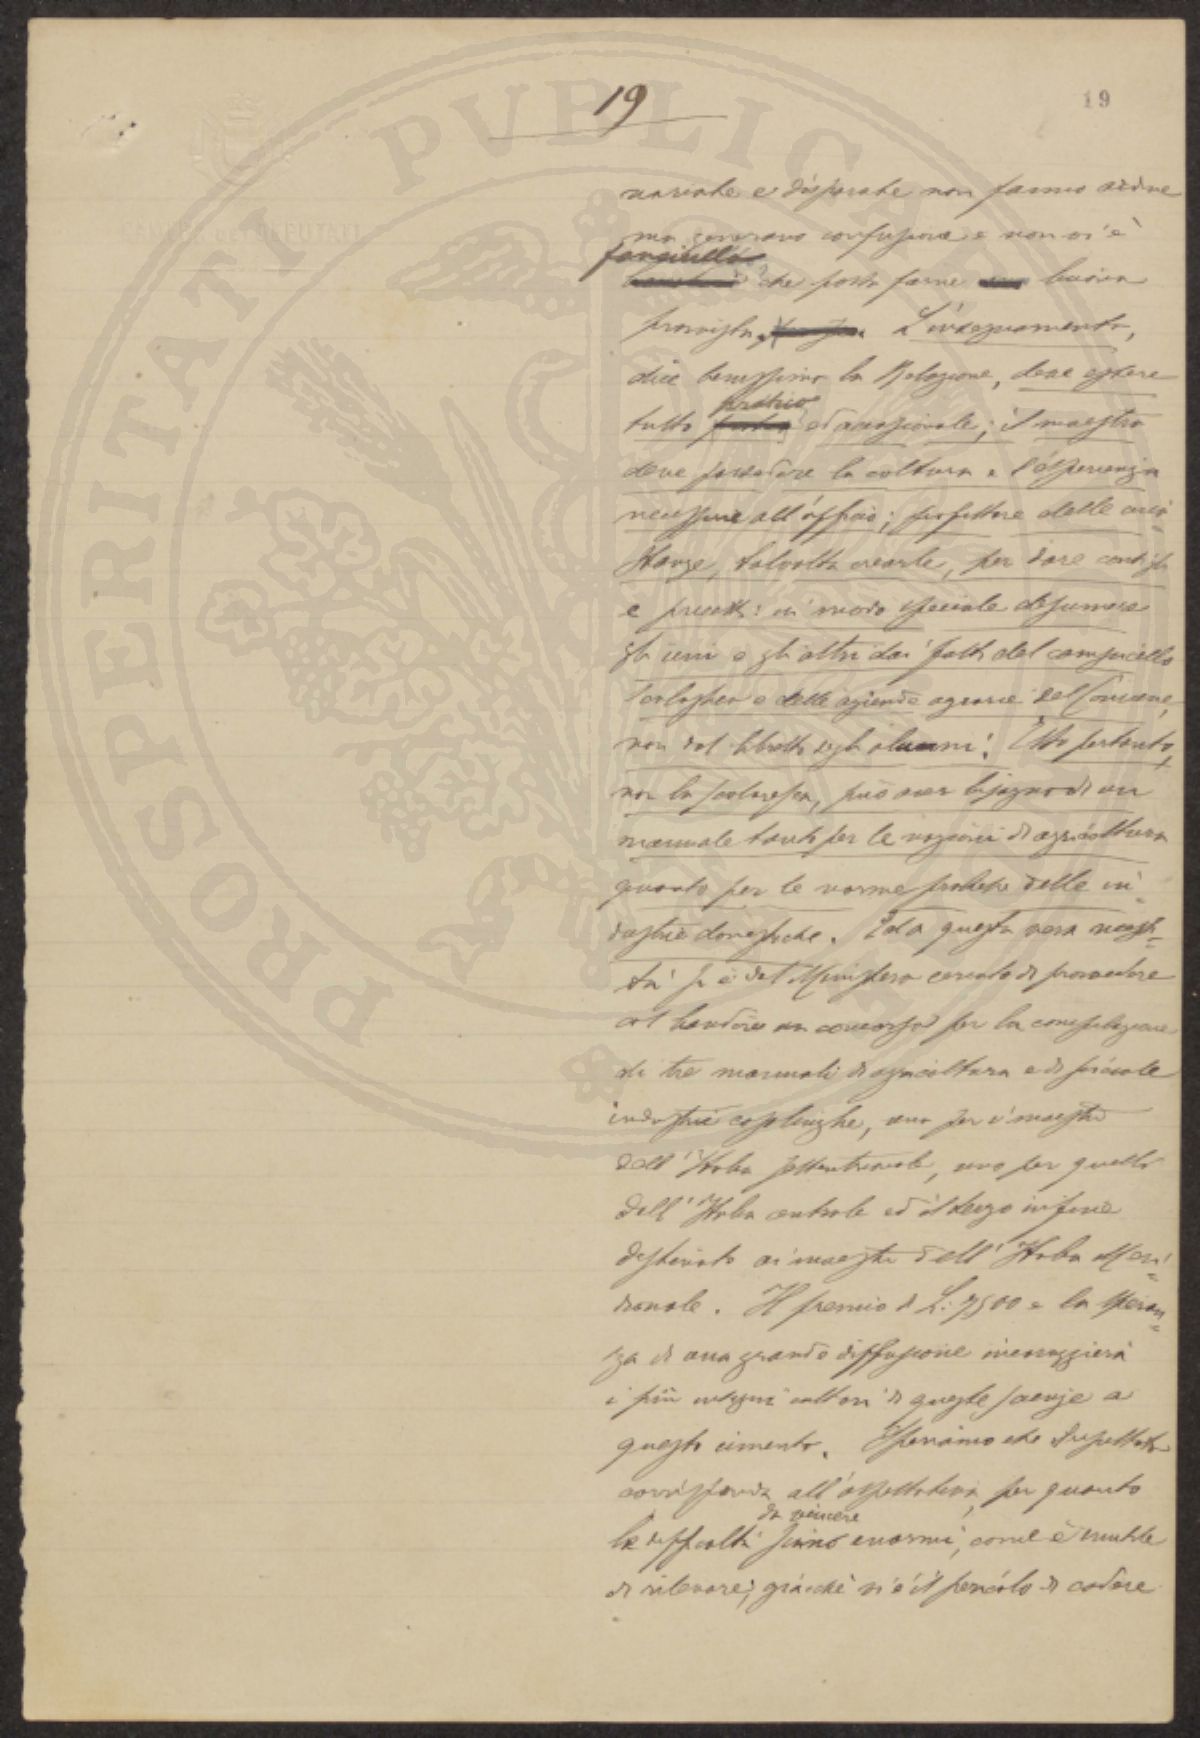 19
19
CAMERA DEI DEPUTATI
PROSPERITATI PVBLICAE
svariate e disparate non fanno ordine
ma generano confusione e non vi è
fanciullo
che possa farne buona
provvista. L'insegnamento,
dice benissimo la Relazione, deve essere
pratico
tutto ed occasionale; il maestro
deve possedere la coltura e l'esperienza
necessarie all'ufficio; profittare delle circo=
stanze, talvolta crearle, per dare consigli
e precetti: in modo speciale desumere
gli uni e gli altri dai fatti del campicello
scolastico e delle aziende agrarie del Comune,
non dal libretto degli alunni. Esso pertanto,
non la scolaresca, può aver bisogno di un
manuale tanto per le nozioni di agricoltura
quanto per le norme pratiche delle in=
dustrie domestiche. Ed a questa vera necessi=
tà si è dal Ministero cercato di provvedere
col bandire un concorso per la compilazione
di tre manuali di agricoltura e di piccole
industrie casalinghe, uno per i maestri
dell'Italia settentrionale, uno per quelli
dell'Italia centrale ed il terzo infine
destinato ai maestri dell'Italia Meri=
dionale. Il premio di L. 7500 e la speran=
za di una grande diffusione incoraggierà
i più insigni cultori di queste scienze a
questo cimento. Speriamo che il risultato
corrisponda all'aspettativa, per quanto
da vincere
le difficoltà siano enormi, com'è inutile
di rilevare; giacchè vi è il pericolo di cadere